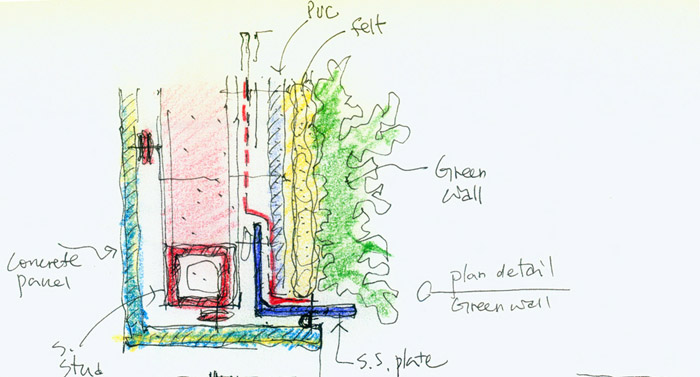 PVC
felt
Green
wall
Concrete
panel
plan detail
Green wall
S.
Stud
S.S. plate